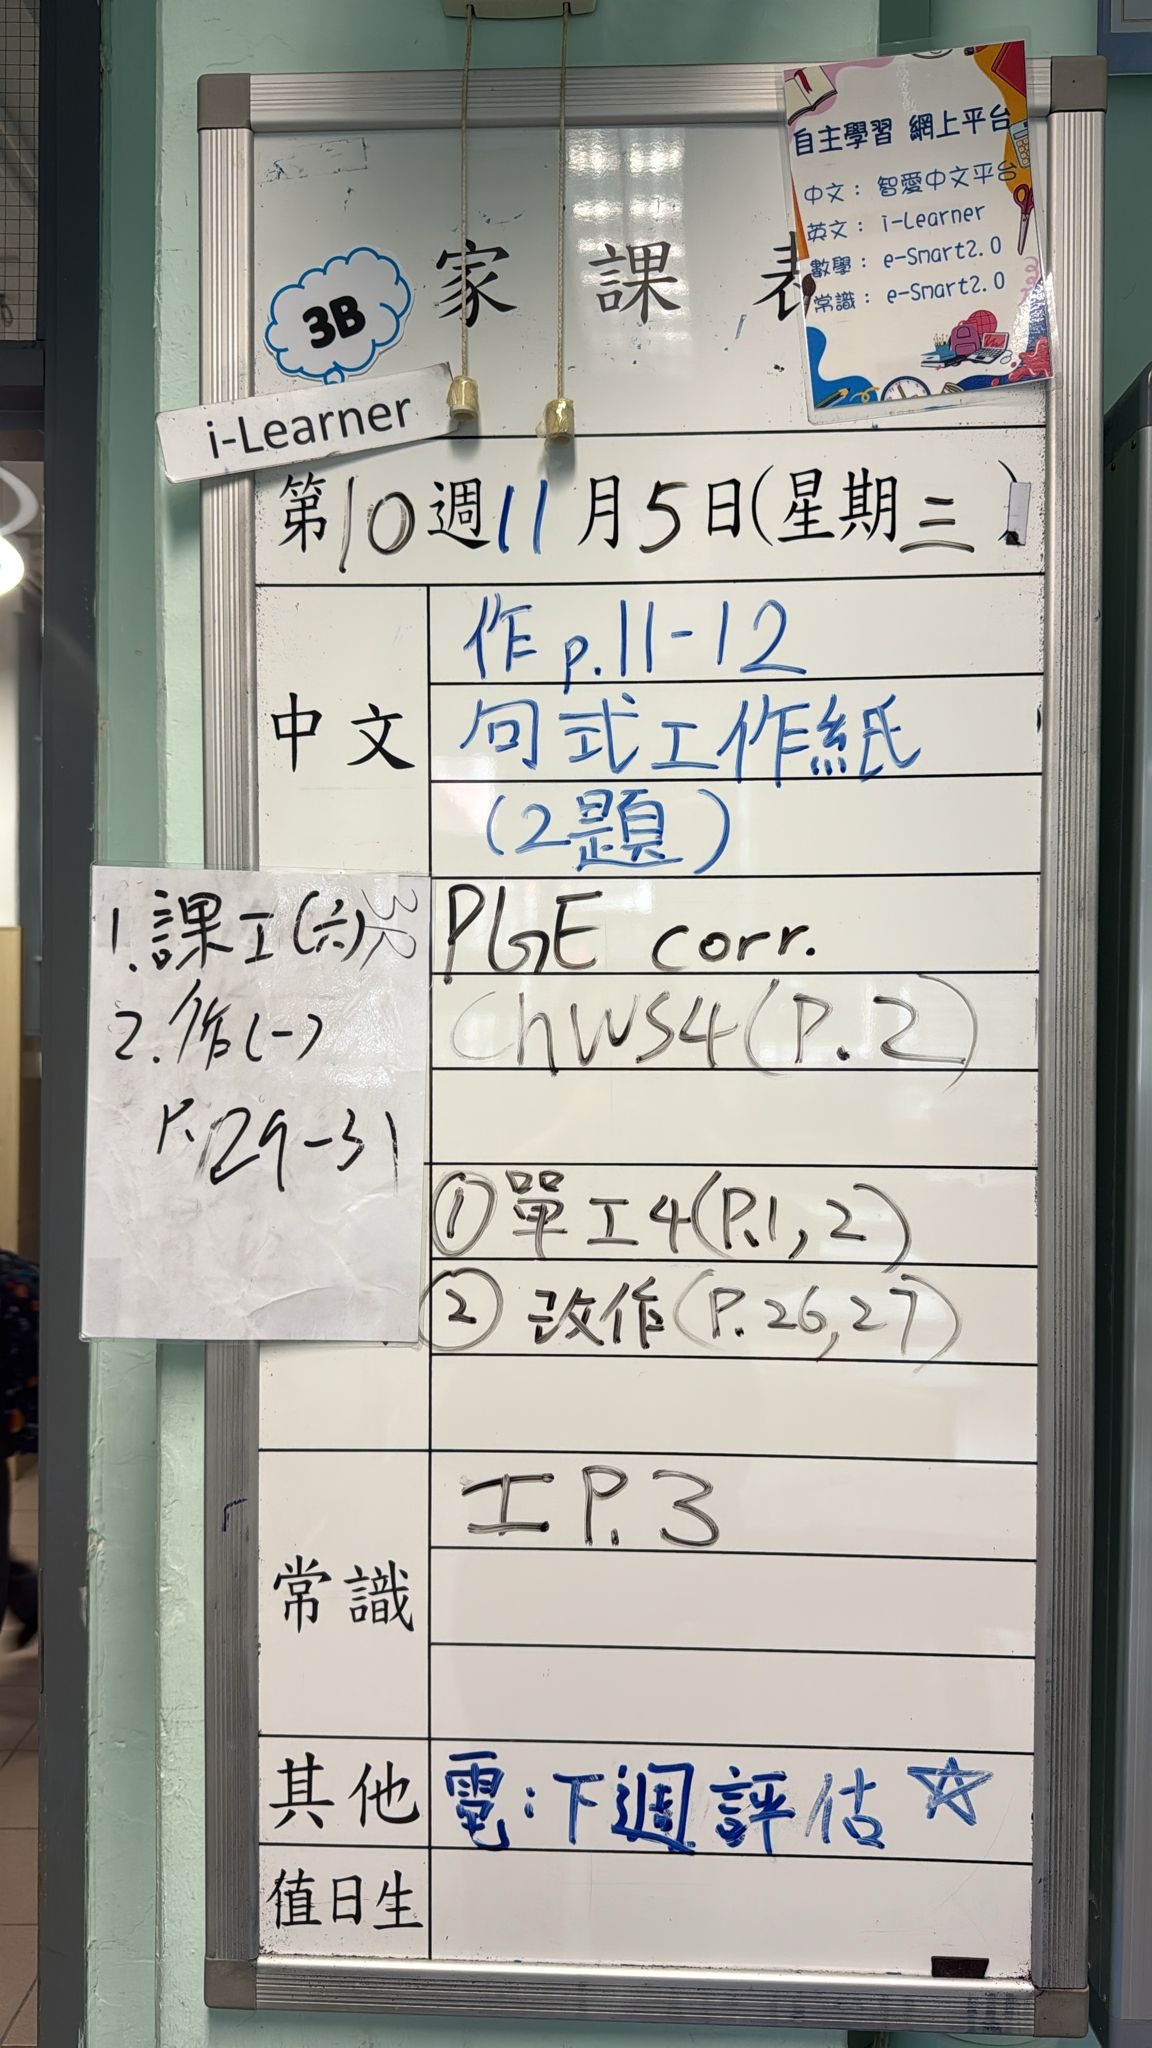 自主學習 網上平台
中文： 智愛中文平台
英文： i-Learner
數學： e-Smart2.0
常識： e-Smart2.0
家 課 表
3B
i-Learner
第10週11月5日(星期三)
中文
作 p.11-12
句式工作紙
(2題)
1.課工(六)
2.作(一)
P.29-31
PGE corr.
ChWS4(P.2)
①單工4(P.1,2)
②改作(P.26,27)
常識
工P.3
其他
電:下週評估☆
值日生